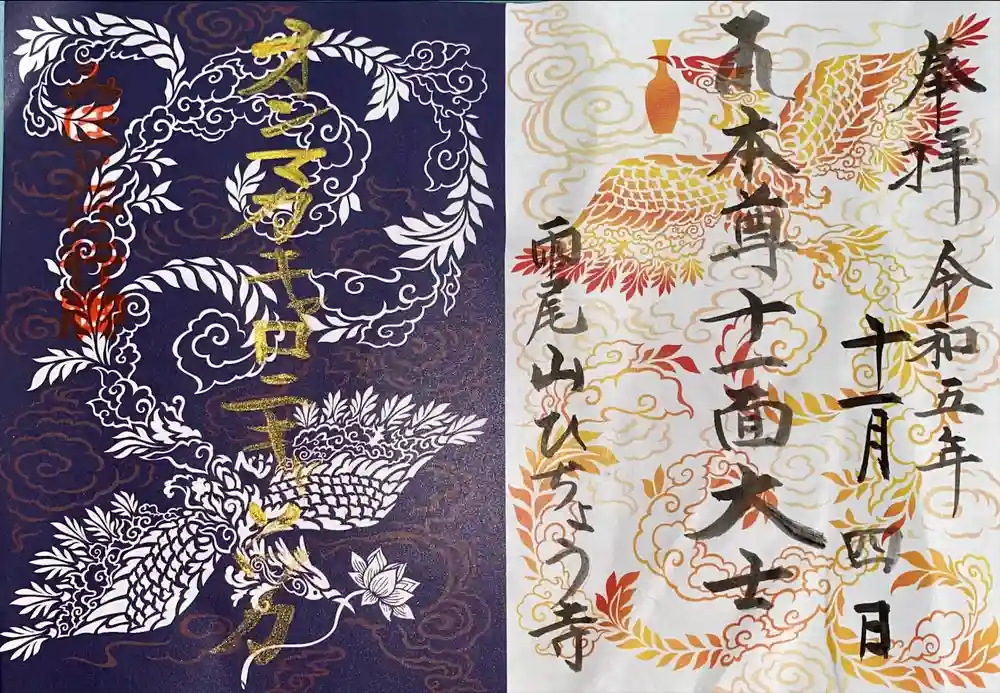 奉拝 令和五年
十一月四日
本尊十一面大士
雨尾山ひぢょう寺
オンマカキャロニキャソワカ